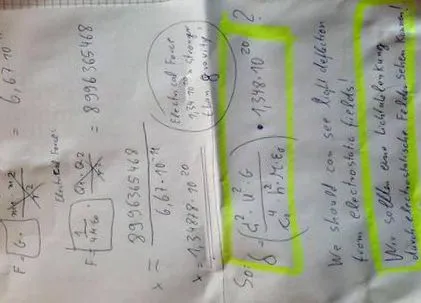 F = G · m1 · m2 / r² = 6,67·10⁻¹¹
Electrical Force:
F = 1/4πε₀ · Q1 · Q2 / r² = 8996365468
x = 8996365468 / 6,67·10⁻¹¹
x = 1,34878·10²⁰
Electrical Force
1,34·10²⁰ x stronger
than gravity
So: · 1,348·10²⁰ ?
We should can see light deflection
from electrostatic fields!
Wir sollten eine Lichtablenkung
durch elektrostatische Felder sehen können!